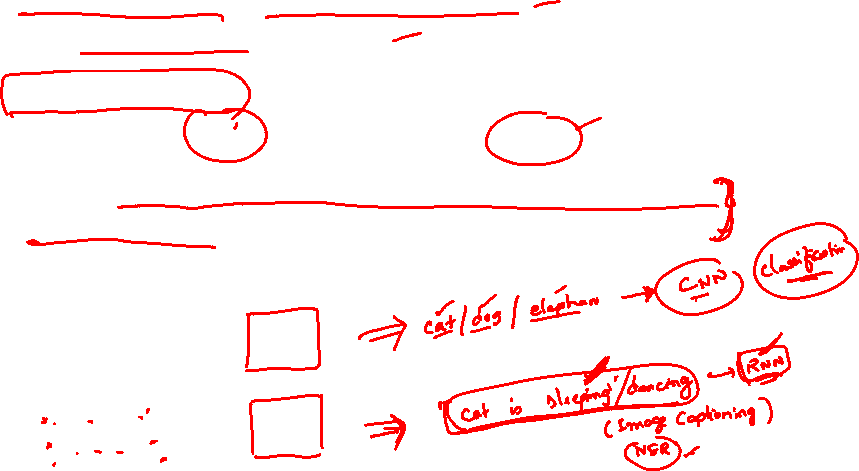 cat/dog/elephan → CNN classification
"cat is sleeping"/dancing → RNN
(Image Captioning)
NER